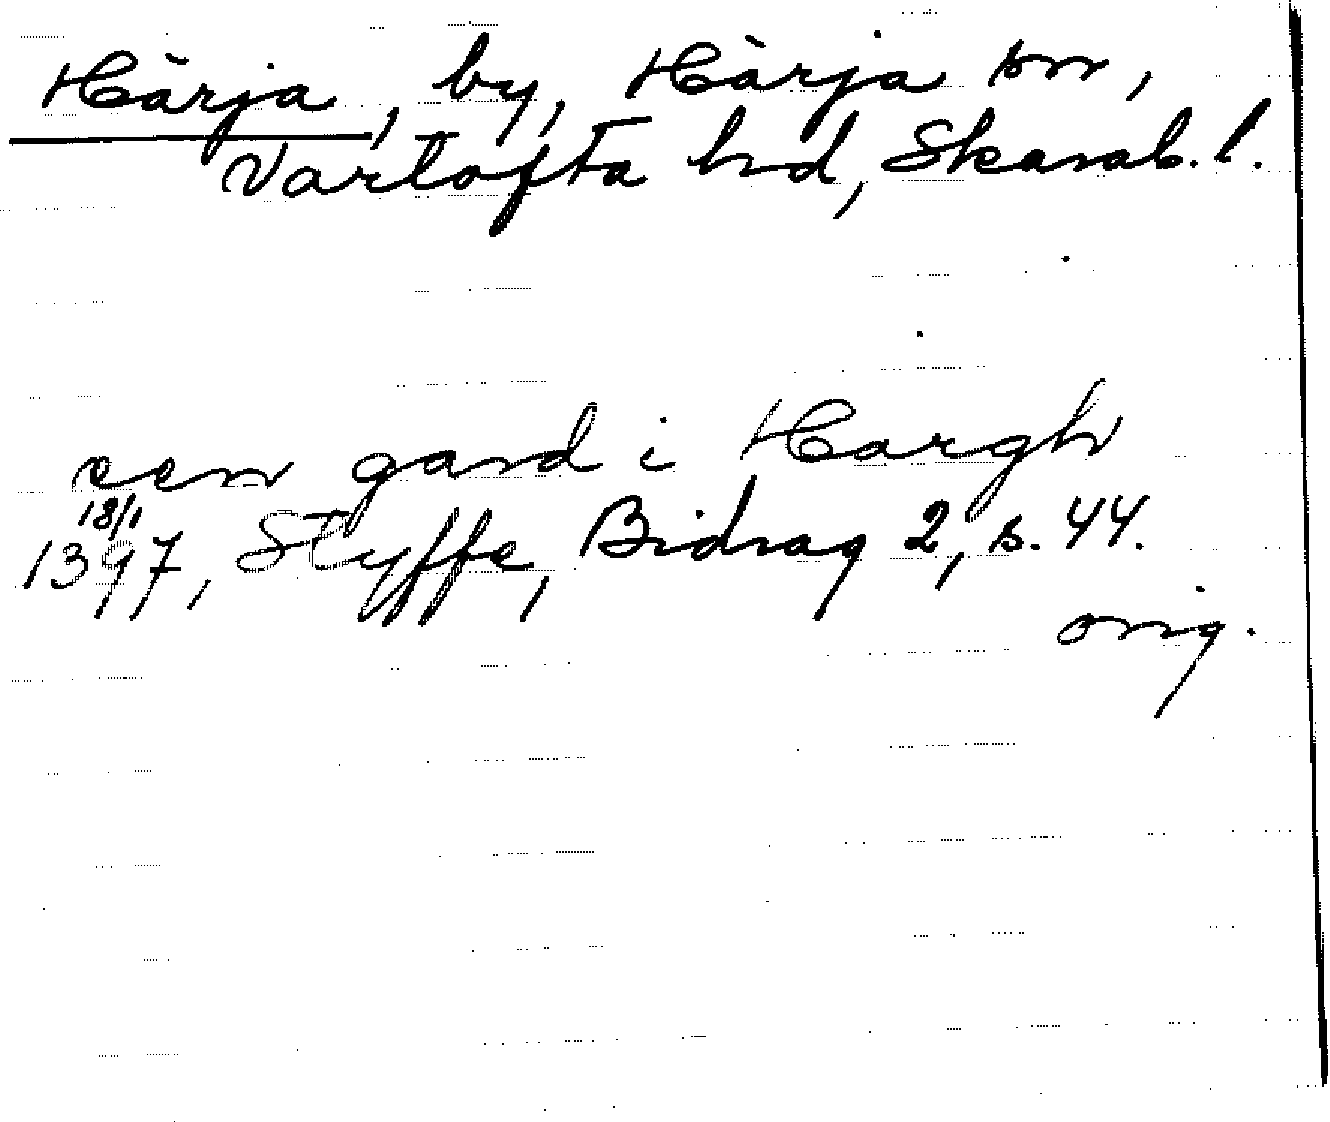 Härja, by, Härja sn,
Vartofta hd, Skarab. l.
een gard i Hargh
18/1
1397, Styffe, Bidrag 2, s. 44.
orig.